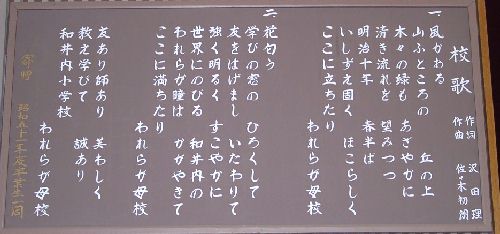 校歌
作詞 沢田理
作曲 佐々木初朗
一、風かおる 丘の上
山ふところの
木々の緑も あざやかに
清き流れを 望みつつ
明治十年 春半ば
いしずえ固く ほこらしく
ここに立ちたり
われらが母校
二、花匂う
学びの窓の ひろくして
友をはげまし いたわりて
強く明るく すこやかに
世界にのびる 和井内の
われらが瞳は かがやきて
ここに満ちたり
われらが母校
友あり師あり 美わしく
教え学びて 誠あり
和井内小学校
われらが母校
寄贈 昭和五十一年度卒業生一同